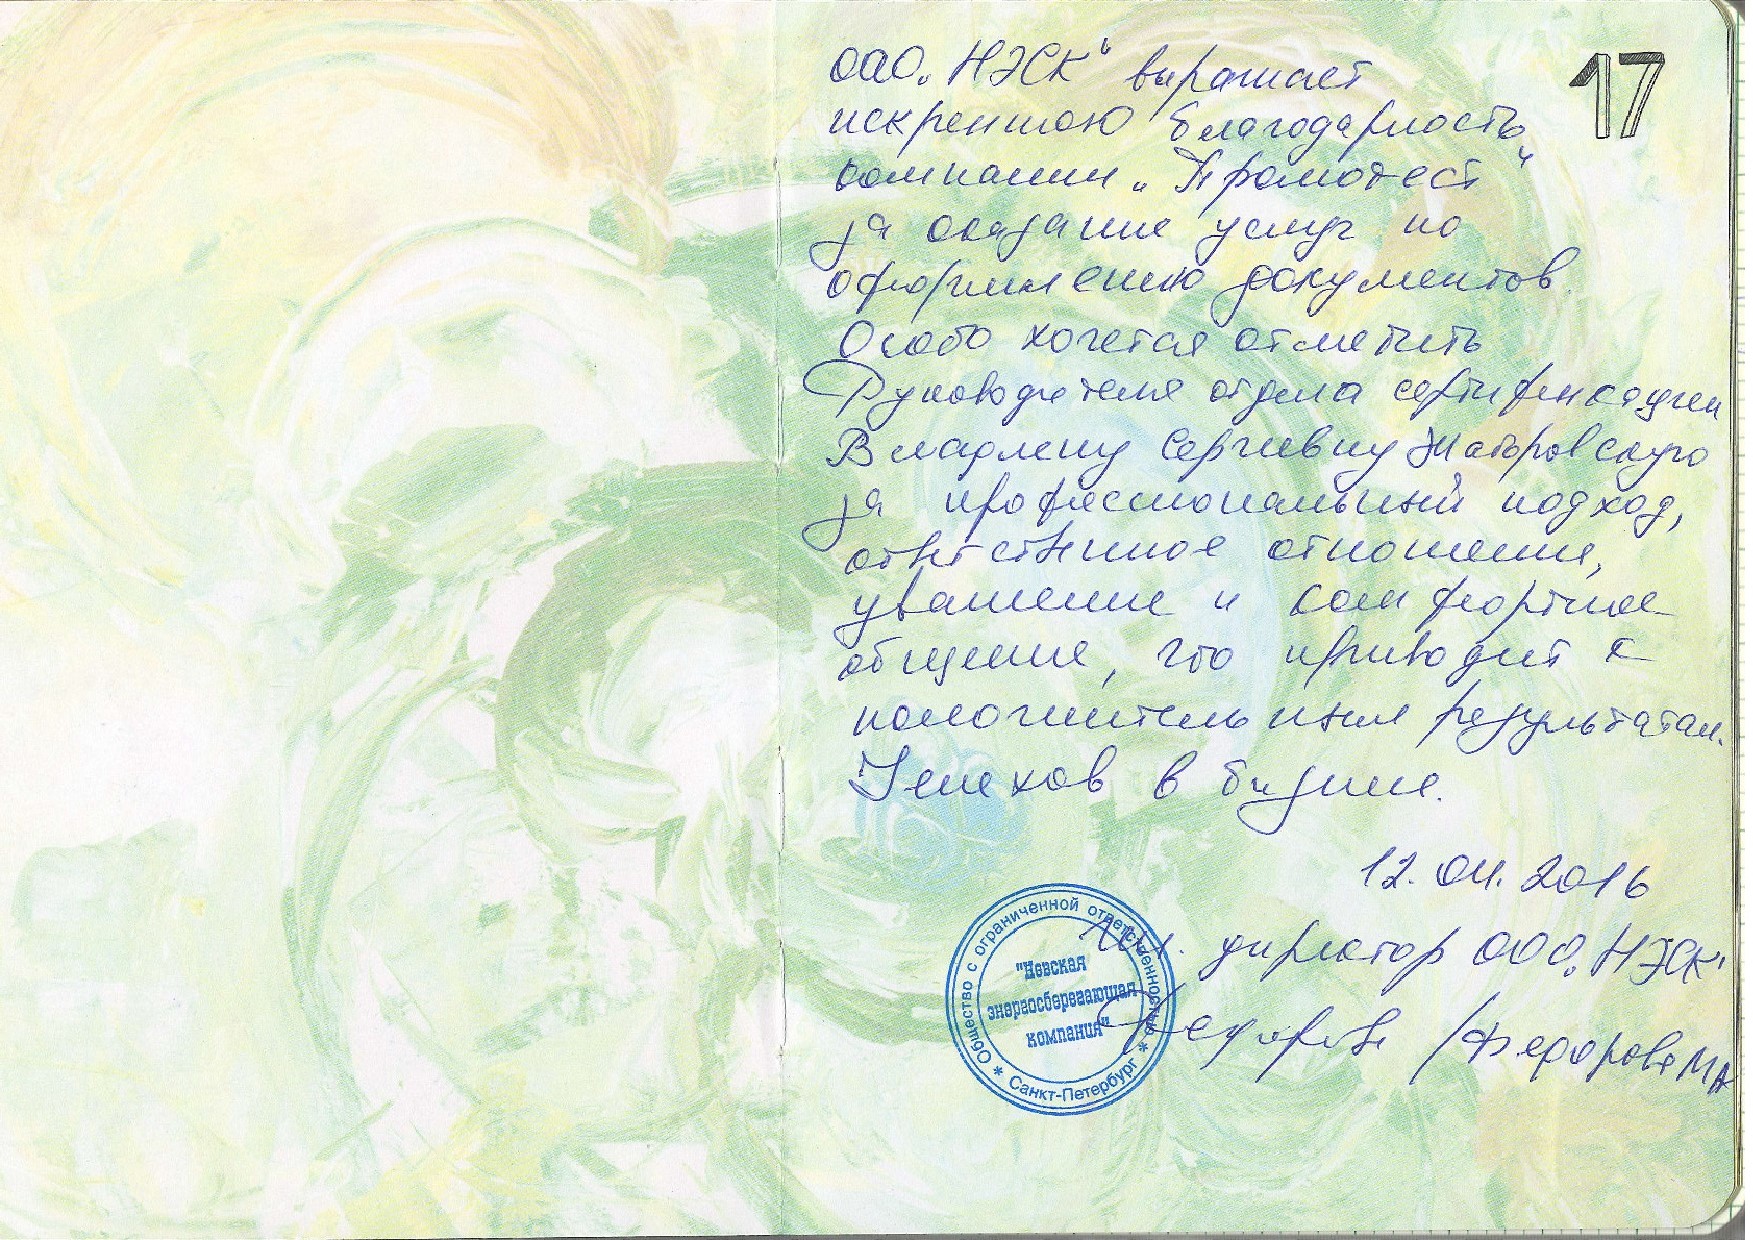 17
ОАО „НЭСК“ выражает
искреннюю благодарность
компании „Промотест“
за оказание услуг по
оформлению документов.
Особо хочется отметить
Руководителя отдела сертификации
Владлену Сергиевну
за профессиональный подход,
ответственное отношение,
уважение и комфортное
общение, что приводит к
положительным результатам.
Успехов в бизнесе.
12.04.2016
Ген. директор ООО „НЭСК“
/Федорова МА
Общество с ограниченной ответственностью
"Невская
энергосберегающая
компания"
* Санкт-Петербург *